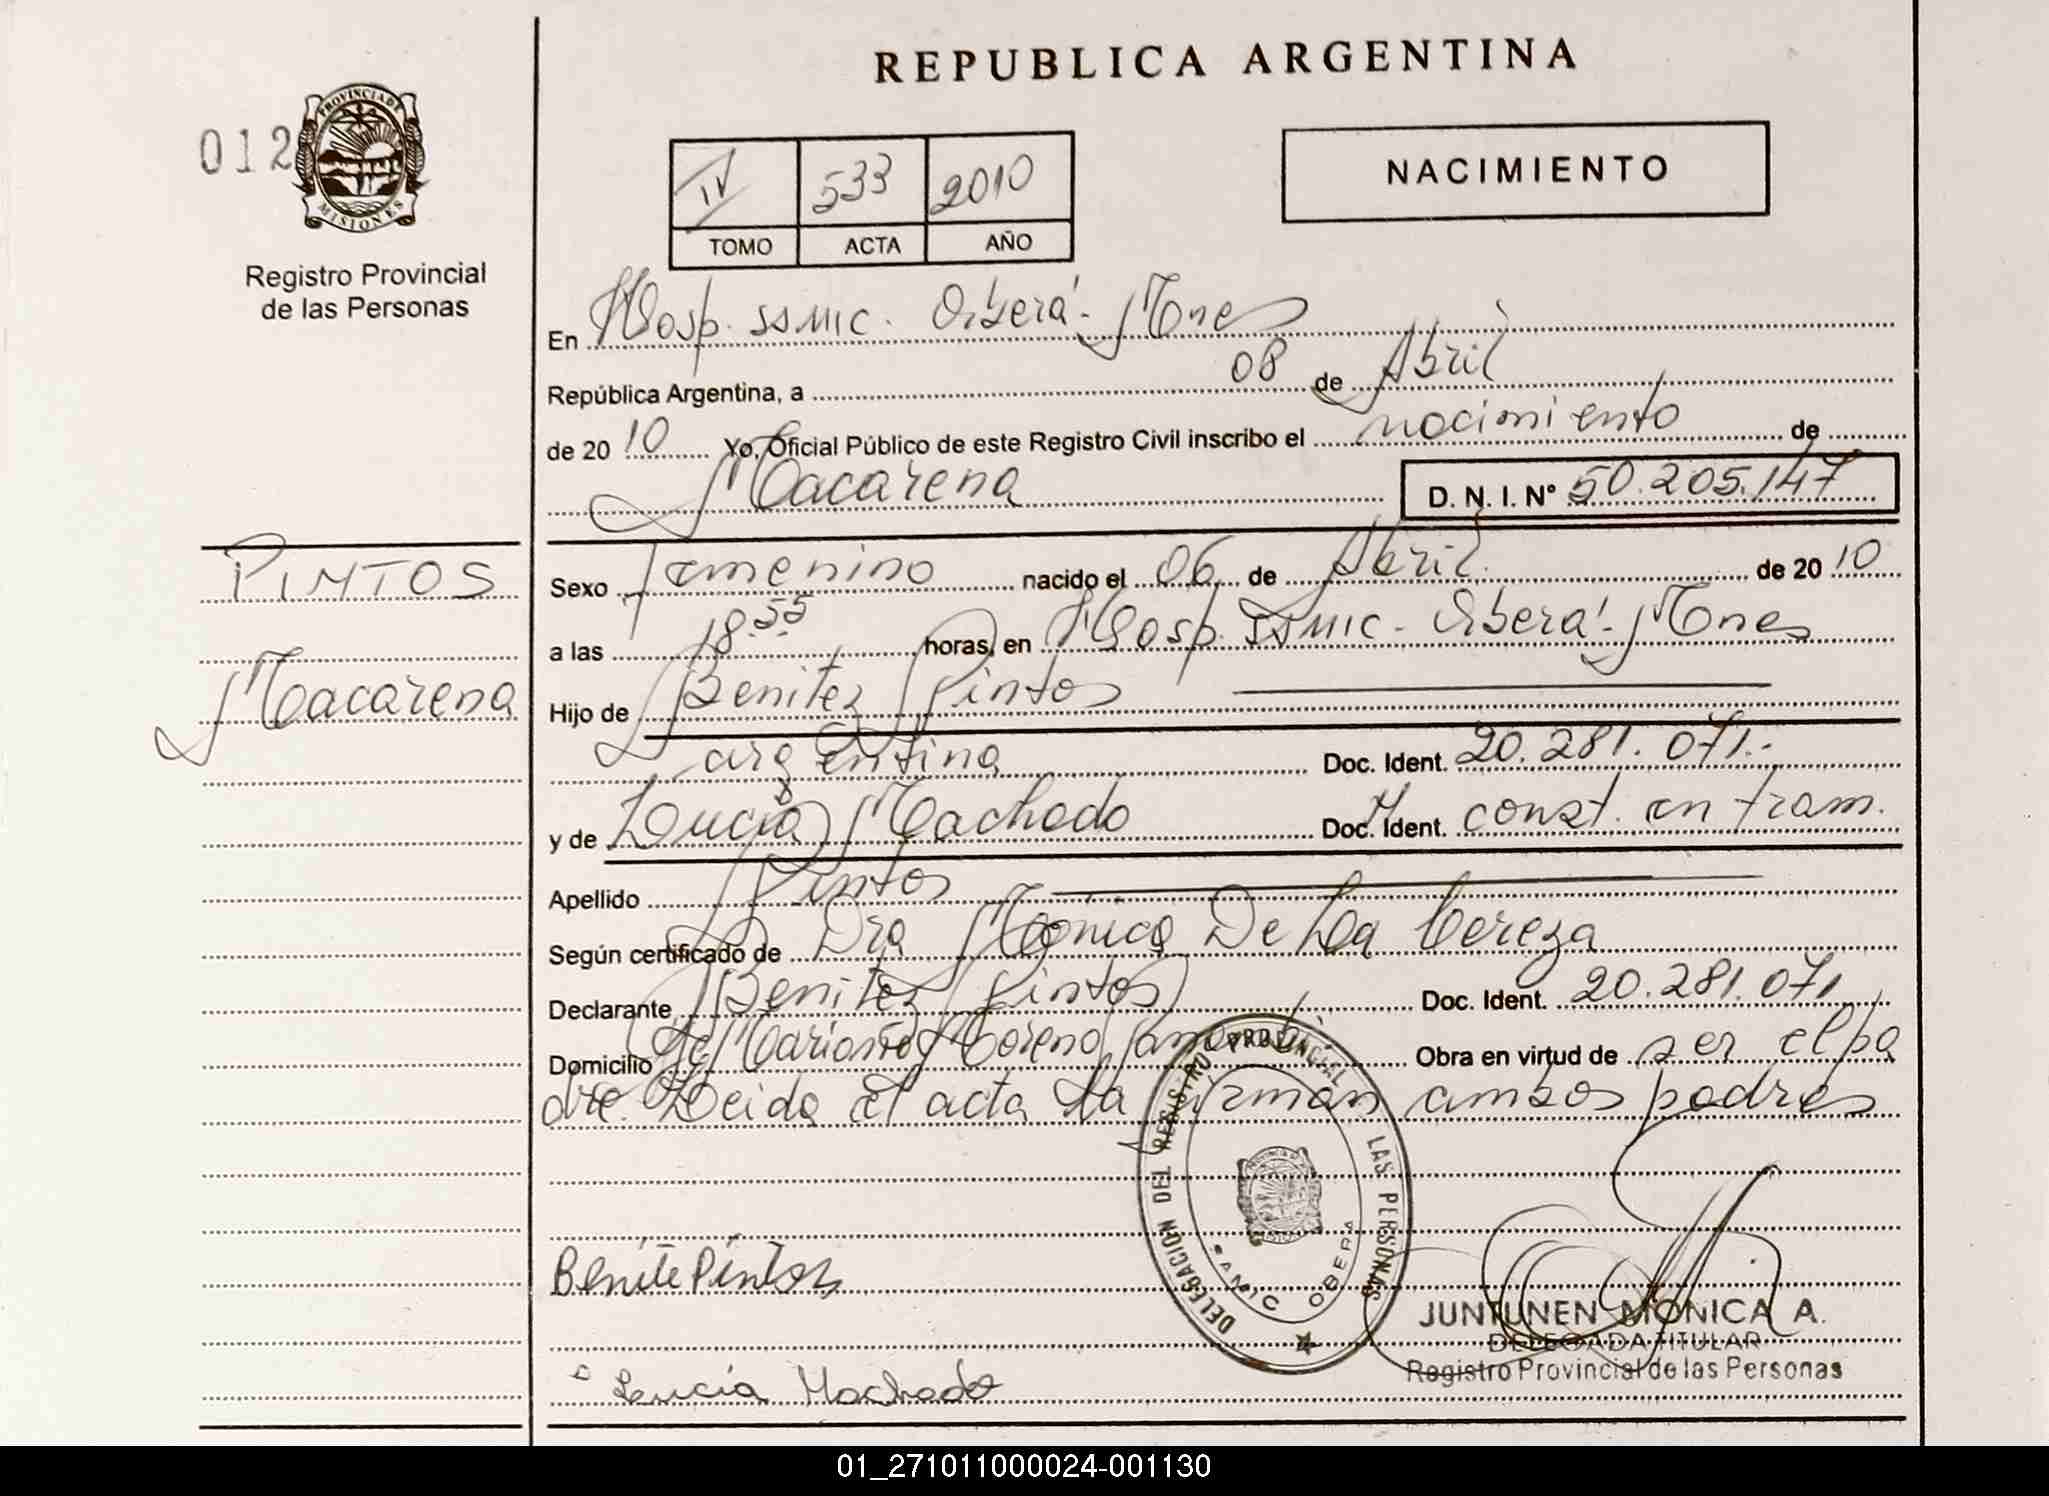 REPUBLICA ARGENTINA
012
PROVINCIA DE MISIONES
Registro Provincial
de las Personas
IV 533 2010
TOMO ACTA AÑO
NACIMIENTO
En Hosp. SSMIC. Oberá - Mnes
República Argentina, a 08 de Abril
de 2010 Yo, Oficial Público de este Registro Civil inscribo el nacimiento de
Macarena D. N. I. Nº 50.205.147
PINTOS
Macarena
Sexo femenino nacido el 06 de Abril de 2010
a las 18.55 horas, en Hosp. SSMIC - Oberá - Mnes
Hijo de Benitez Pintos
argentina Doc. Ident. 20.281.071.-
y de Lucia Machado Doc. Ident. const. en tram.
Apellido Pintos
Según certificado de Dra Mónica De La
Declarante Benitez Pintos Doc. Ident. 20.281.071
Domicilio Mariano Moreno Panambi Obra en virtud de ser el pa
dre. Leida el acta la firman ambos padres
DELEGACION DEL REGISTRO PROVINCIAL LAS PERSONAS
SAMIC OBERA
Benite Pintos
Lucía Machado
JUNTUNEN MONICA A.
DELEGADA TITULAR
Registro Provincial de las Personas
01_271011000024-001130